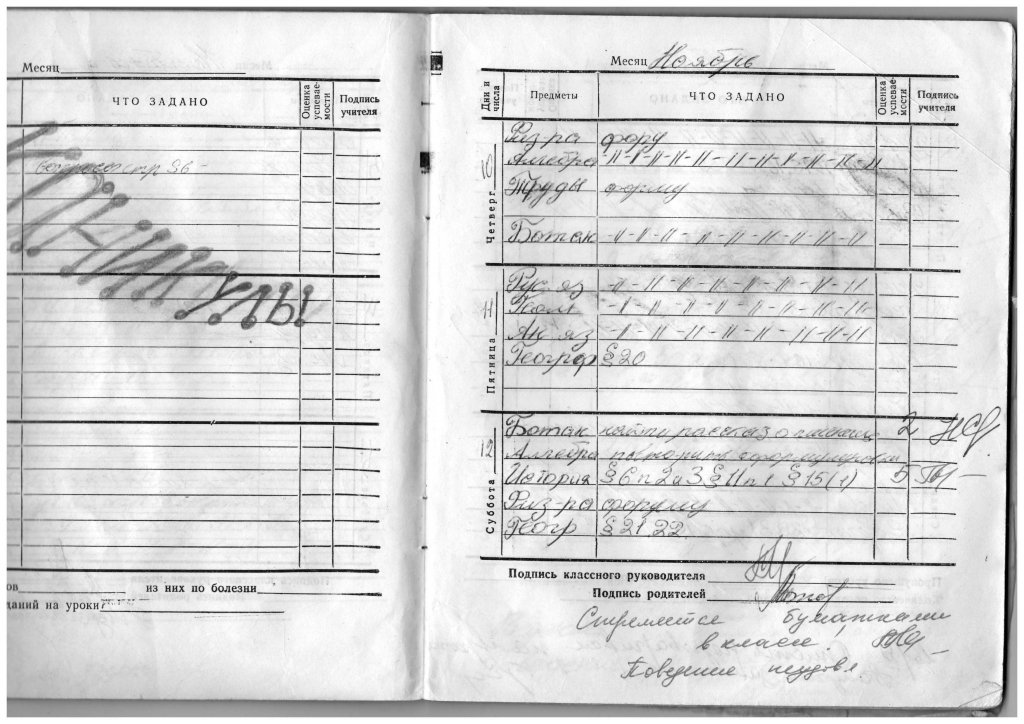 Месяц
ЧТО ЗАДАНО
Оценка успеваемости
Подпись учителя
стр 96
КАНИКУЛЫ
из них по болезни
даний на уроки
Месяц Ноябрь
Дни и числа
Предметы
ЧТО ЗАДАНО
Оценка успеваемости
Подпись учителя
Четверг 10
Физ-ра форму
Алгебра -//-//-//-//-//-//-//-//-//-//-//
Труды форму
Ботан -//-//-//-//-//-//-//-//-//
Пятница 11
Рус яз -//-//-//-//-//-//-//-//-//
Геом -//-//-//-//-//-//-//-//-//
Ан яз -//-//-//-//-//-//-//-//-//
Географ § 20
Суббота 12
Ботан найти рассказ о 2
Алгебра
История § 6 п 2 и 3 § 11 п 1 § 15 (1) 5
Физ-ра форму
Геогр § 21, 22.
Подпись классного руководителя
Подпись родителей
Стреляется бумажками
в классе!
Поведение неудовл.